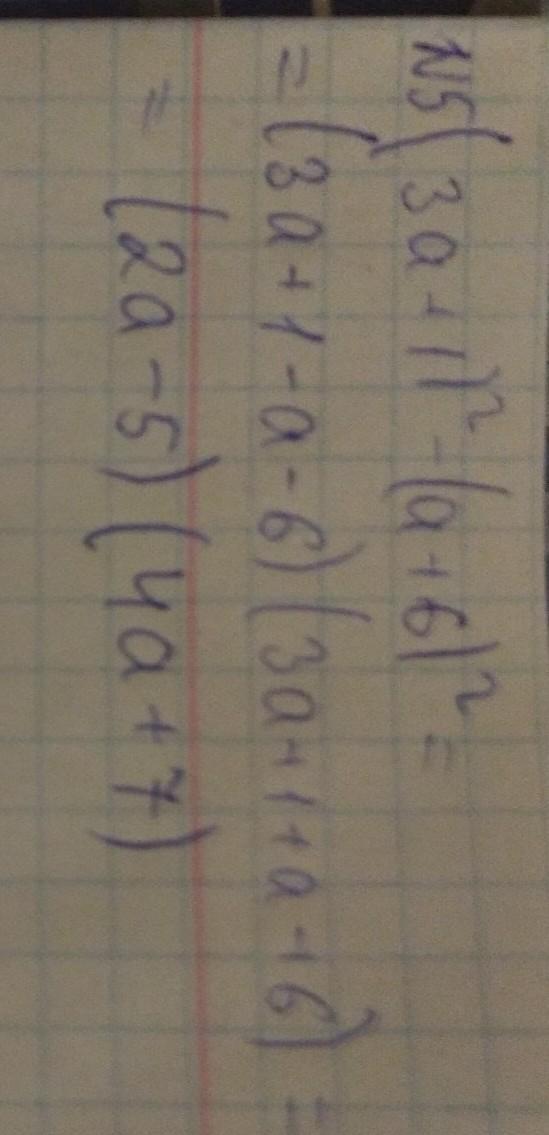 N5 (3a+1)²-(a+6)²=
=(3a+1-a-6)(3a+1+a+6)=
=(2a-5)(4a+7)